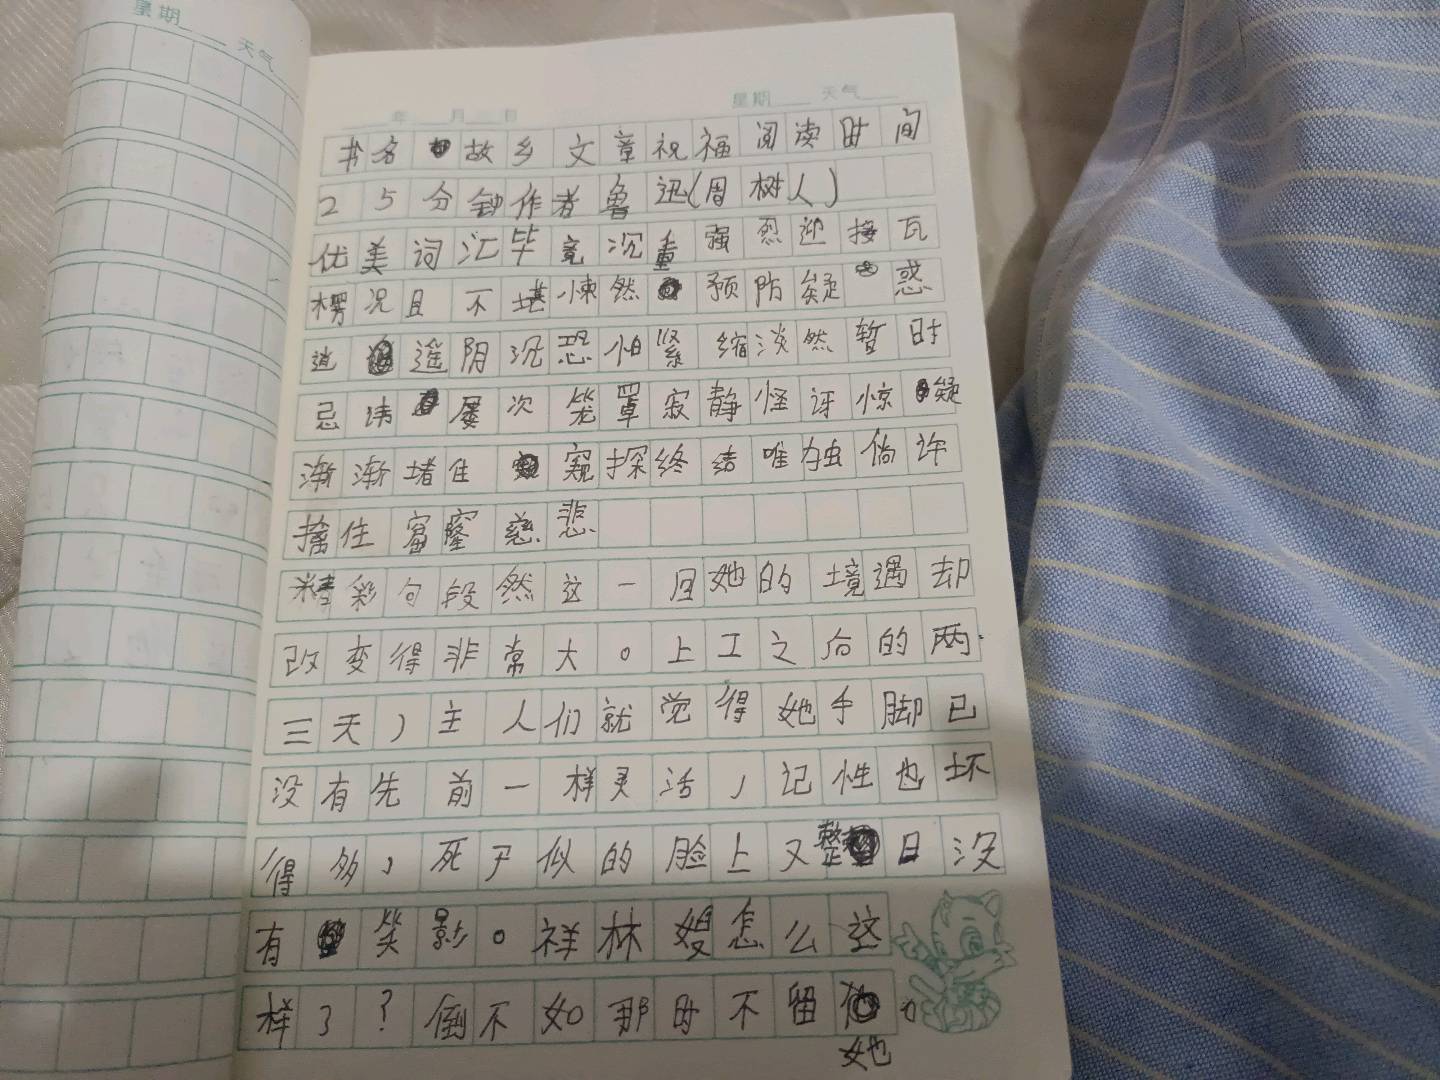 星期 天气
年 月 日 星期 天气
书名故乡文章祝福阅读时间
25分钟作者鲁迅(周树人)
优美词汇毕竟沉重强忍迎接瓦
楞况且不堪悚然预防疑惑
逍遥阴沉恐怕紧缩淡然暂时
忌讳屡次笼罩寂静怪讶惊疑
渐渐堵住窥探终结唯独倘许
擒住窑窿慈悲
精彩句段然这一回她的境遇却
改变得非常大。上工之后的两
三天,主人们就觉得她手脚已
没有先前一样灵活,记性也坏
得多,死尸似的脸上又整日没
有笑影。祥林嫂怎么这
样了?倒不如那时不留她。